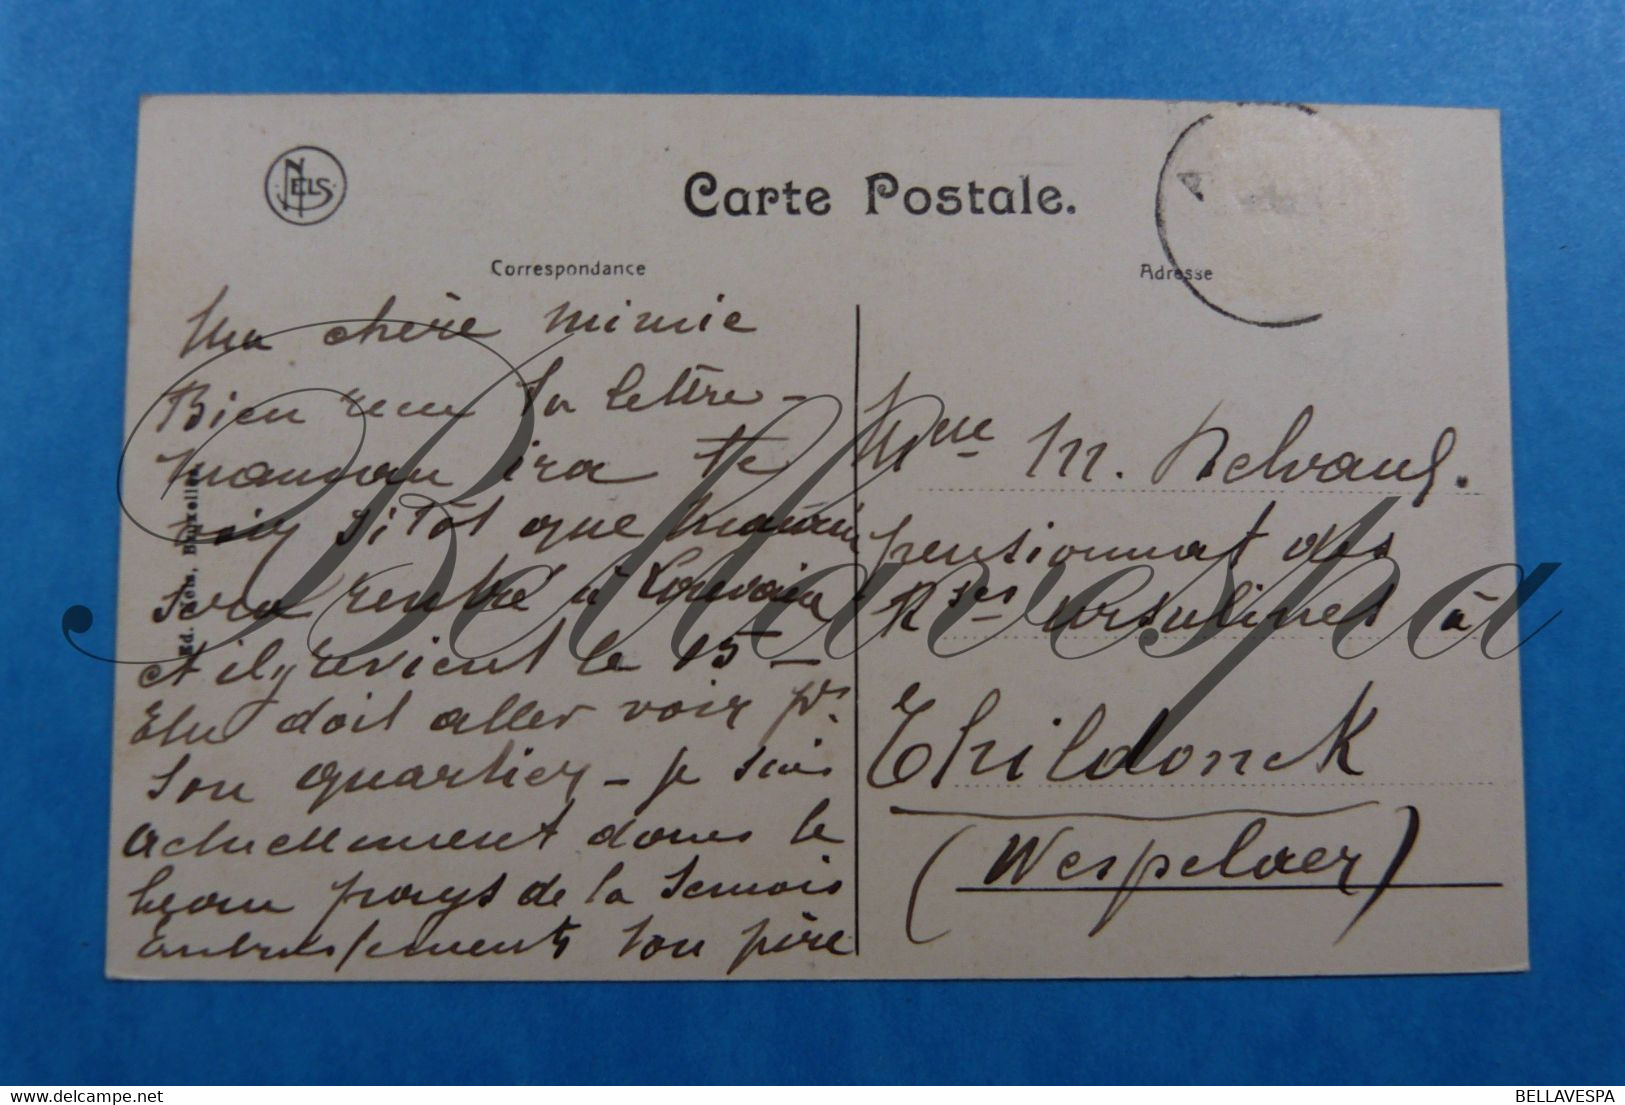 NELS
Carte Postale.
Correspondance
Adresse
Ma chère Mimie
Bien reçu ta lettre -
maman ira te
voir sitôt que Maurice
sera rentré à Louvain
et il y revient le 15 -
Elle doit aller voir pr
son quartier - je suis
actuellement dans le
beau pays de la Semois
Embrassements ton père
Ed. Nels, Bruxelles
Mme M. Delvaux.
pensionnat des
Rses ursulines à
Thildonck
(Wespelaer)
Bellavespa
delcampe.net
BELLAVESPA